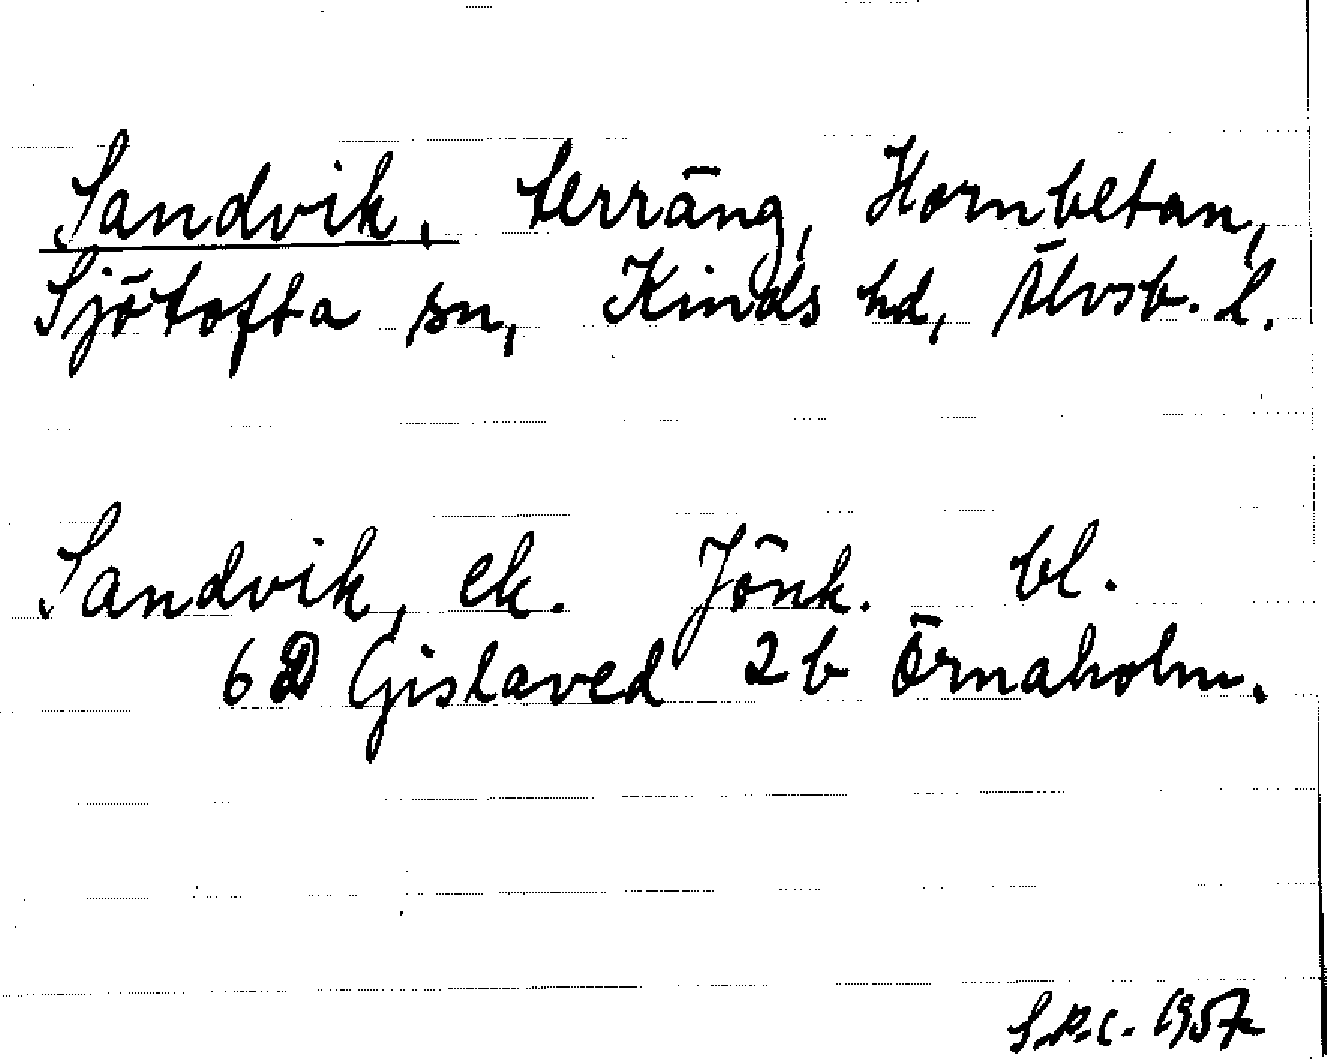 Sandvik, terräng, Hornbetan,
Sjötofta sn, Kinds hd, Älvsb. l.
Sandvik, ek. Jönk. bl.
6 D Gislaved 2 b Örnaholm.
1957